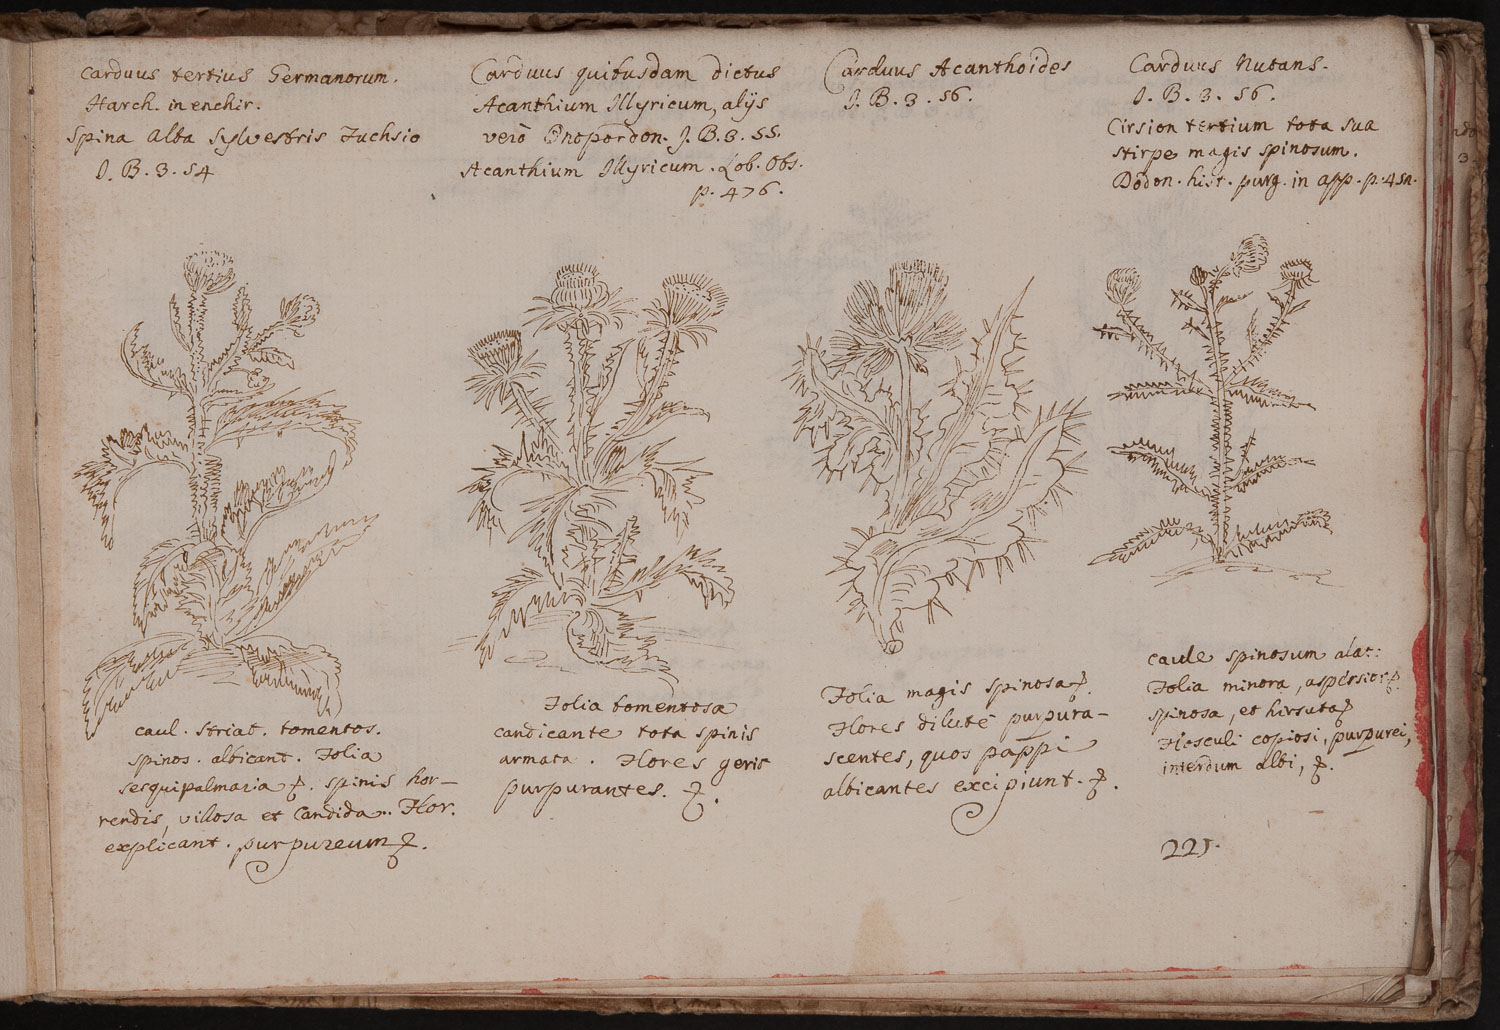 Carduus tertius Germanorum.
Harch. in enchir.
Spina Alba Sylvestris Fuchsio
I. B. 3. 54
Carduus quibusdam dictus
Acanthium Illyricum, alÿs
verò Onopordon. J. B. 3. 55.
Acanthium Illyricum. Lob. Obs.
p. 476.
Carduus Acanthoides
I. B. 3. 56.
Carduus Nutans.
I. B. 3. 56.
Cirsion tertium tota sua
stirpe magis spinosum.
Dodon. hist. purg. in app. p.
caul. striat. tomentos.
spinos. albicant. Folia
sesquipalmaria &. spinis hor-
rendis, villosa et Candida.. Flor.
explicant. purpureum &.
Folia tomentosa
candicante tota spinis
armata. Flores gerit
purpurantes. &.
Folia magis spinosa &.
Flores dilutè purpura-
scentes, quos pappi
albicantes excipiunt. &.
caule spinosum alat:
Folia minora, asperiora &.
spinosa, et hirsuta &
Flosculi copiosi, purpurei,
interdum albi, &.
221.